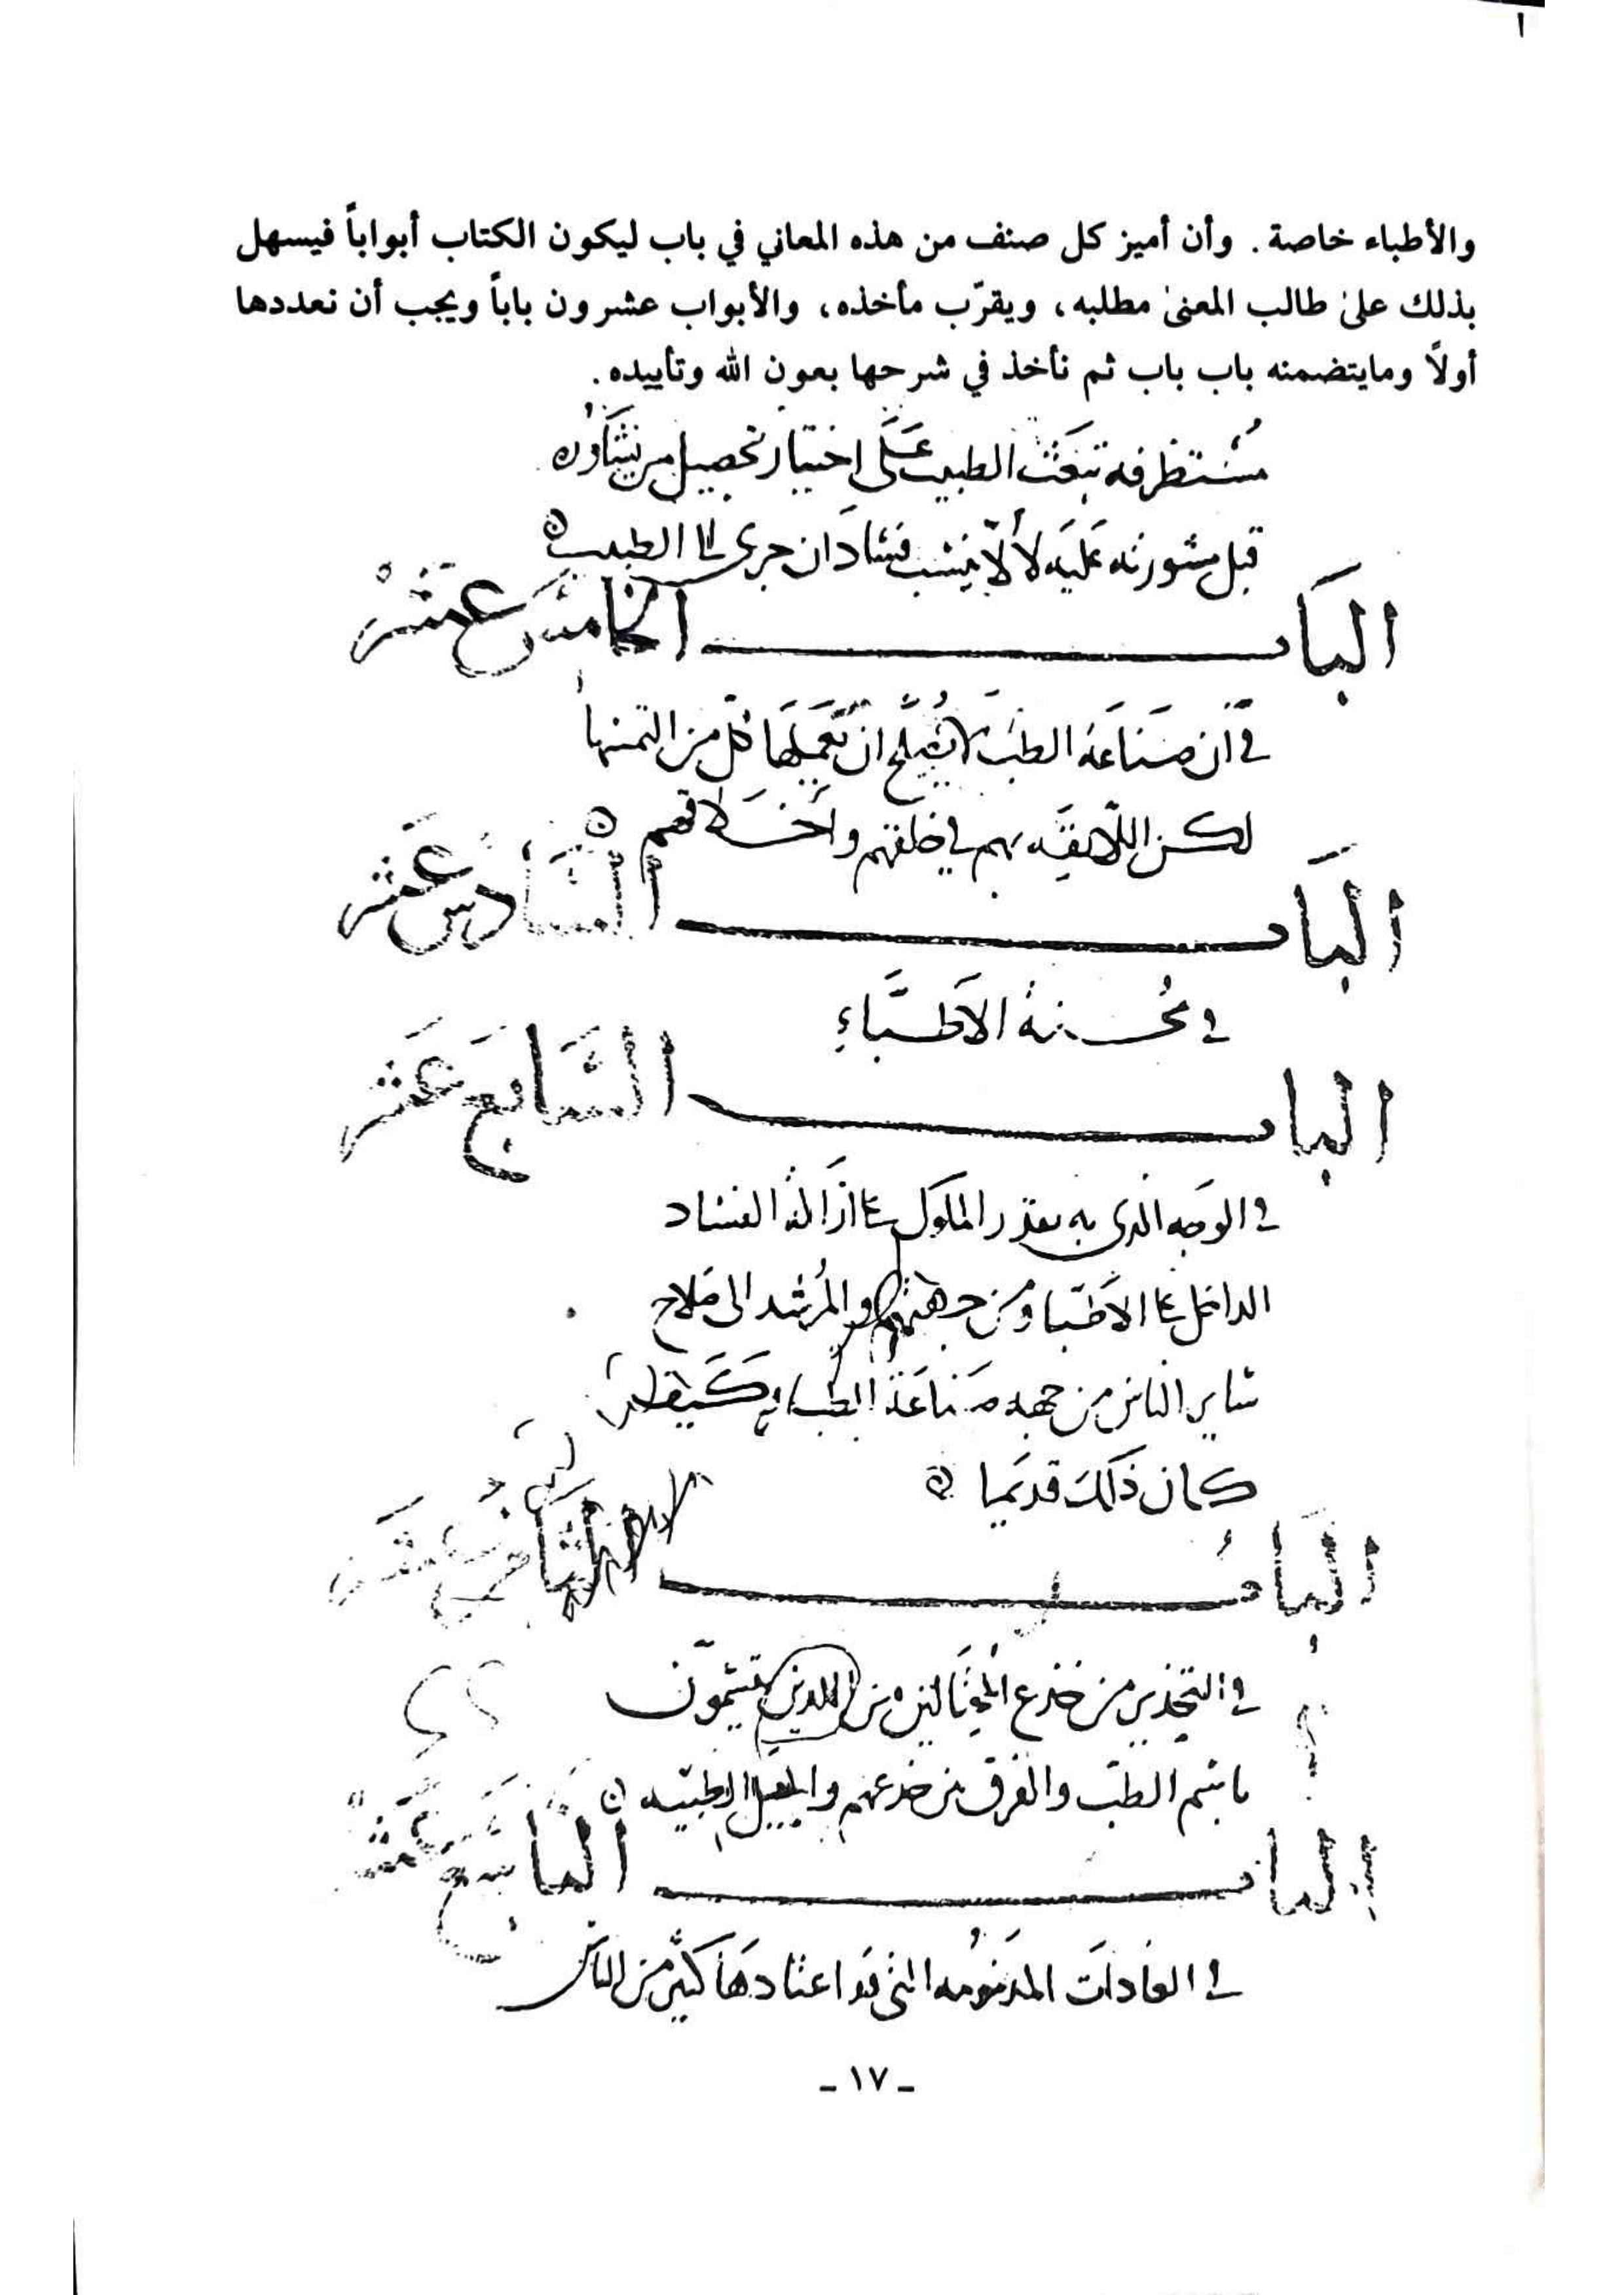 ١
والأطباء خاصة. وأن أميز كل صنف من هذه المعاني في باب ليكون الكتاب أبواباً فيسهل
بذلك علىٰ طالب المعنىٰ مطلبه، ويقرّب مأخذه، والأبواب عشرون باباً ويجب أن نعددها
أولاً ومايتضمنه باب باب ثم نأخذ في شرحها بعون الله وتأييده.
مستظرفه تبعث الطبيب على اختيار تحصيل من يشاوره
قبل مشورته عليه لألا ينسب فساد ان جرى الى الطبيب
الباب الخامس عشر
في ان صناعة الطب لا يصلح ان يعملها كل من التمسها
لكن اللايقه بهم في خلقهم واخلاقهم
الباب السادس عشر
في محنة الاطباء
الباب السابع عشر
في الوجه الذي به يقدر الملوك على ازالة الفساد
الداخل على الاطباء من جهتهم والمرشد الى صلاح
ساير الناس من جهه صناعة الطب وكيف
كان ذلك قديما
الباب الثامن عشر
في التحذير من خدع المحتالين من الذين يتسمون
باسم الطب والفرق بين خدعهم والحيل الطبيه
الباب التاسع عشر
في العادات المذمومه التي قد اعتادها كثير من الناس
- ١٧ -